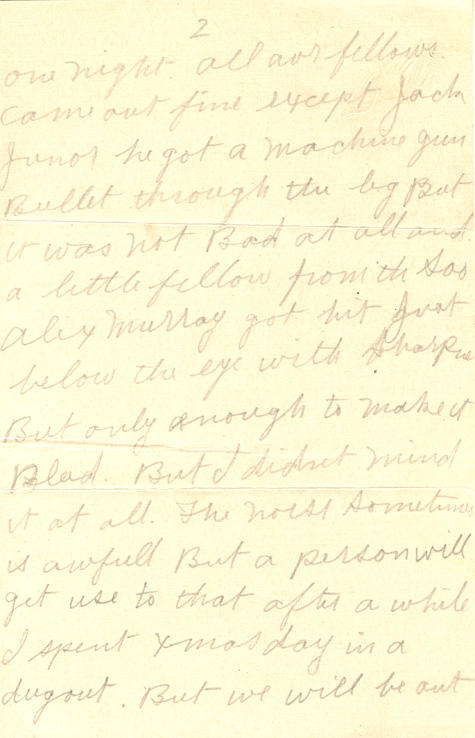 2
one night. all our fellows.
Came out fine except Jack
Junor he got a machine gun
Bullet through the leg But
it was not Bad at all and
a little fellow from th Soo
Alix Murray got hit Just
below the eye with
But only enough to make it
Blead. But I didnt mind
it at all. The noise Sometimes
is awfull But a person will
get use to that after a while
I spent xmas day in a
dugout. But we will be out